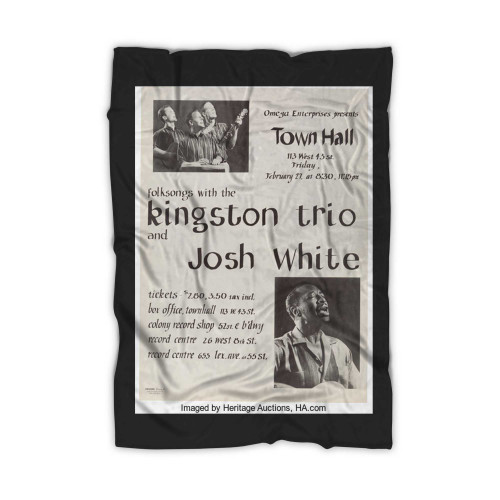 Omega Enterprises presents
Town Hall
113 West 43 st.
Friday,
February 27, at 8:30, 11:15 pm
folksongs with the
kingston trio
and
Josh White
tickets $2.80, 3.50 tax incl.
box office, townhall 113 w 43 st.
colony record shop 52st. & b'dwy
record centre 26 west 8th st.
record centre 655 lex. ave. at 55 st.
Imaged by Heritage Auctions, HA.com